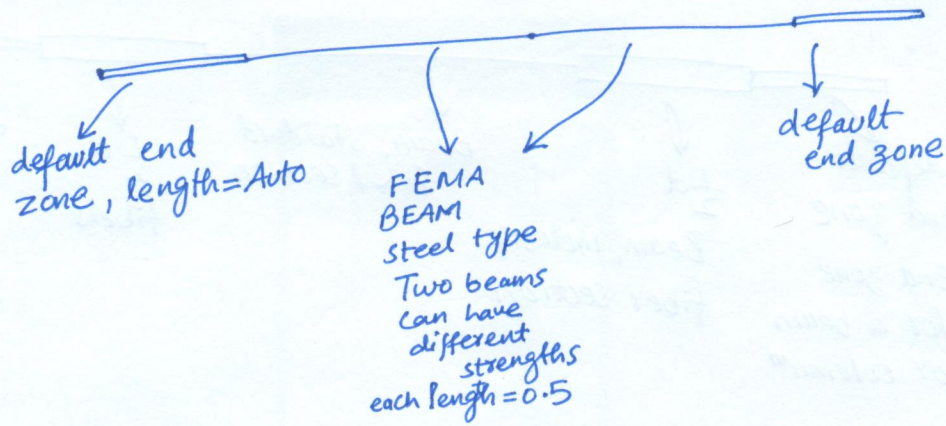 default end
zone, length=Auto
FEMA
BEAM
steel type
Two beams
can have
different
strengths
each length=0.5
default
end zone